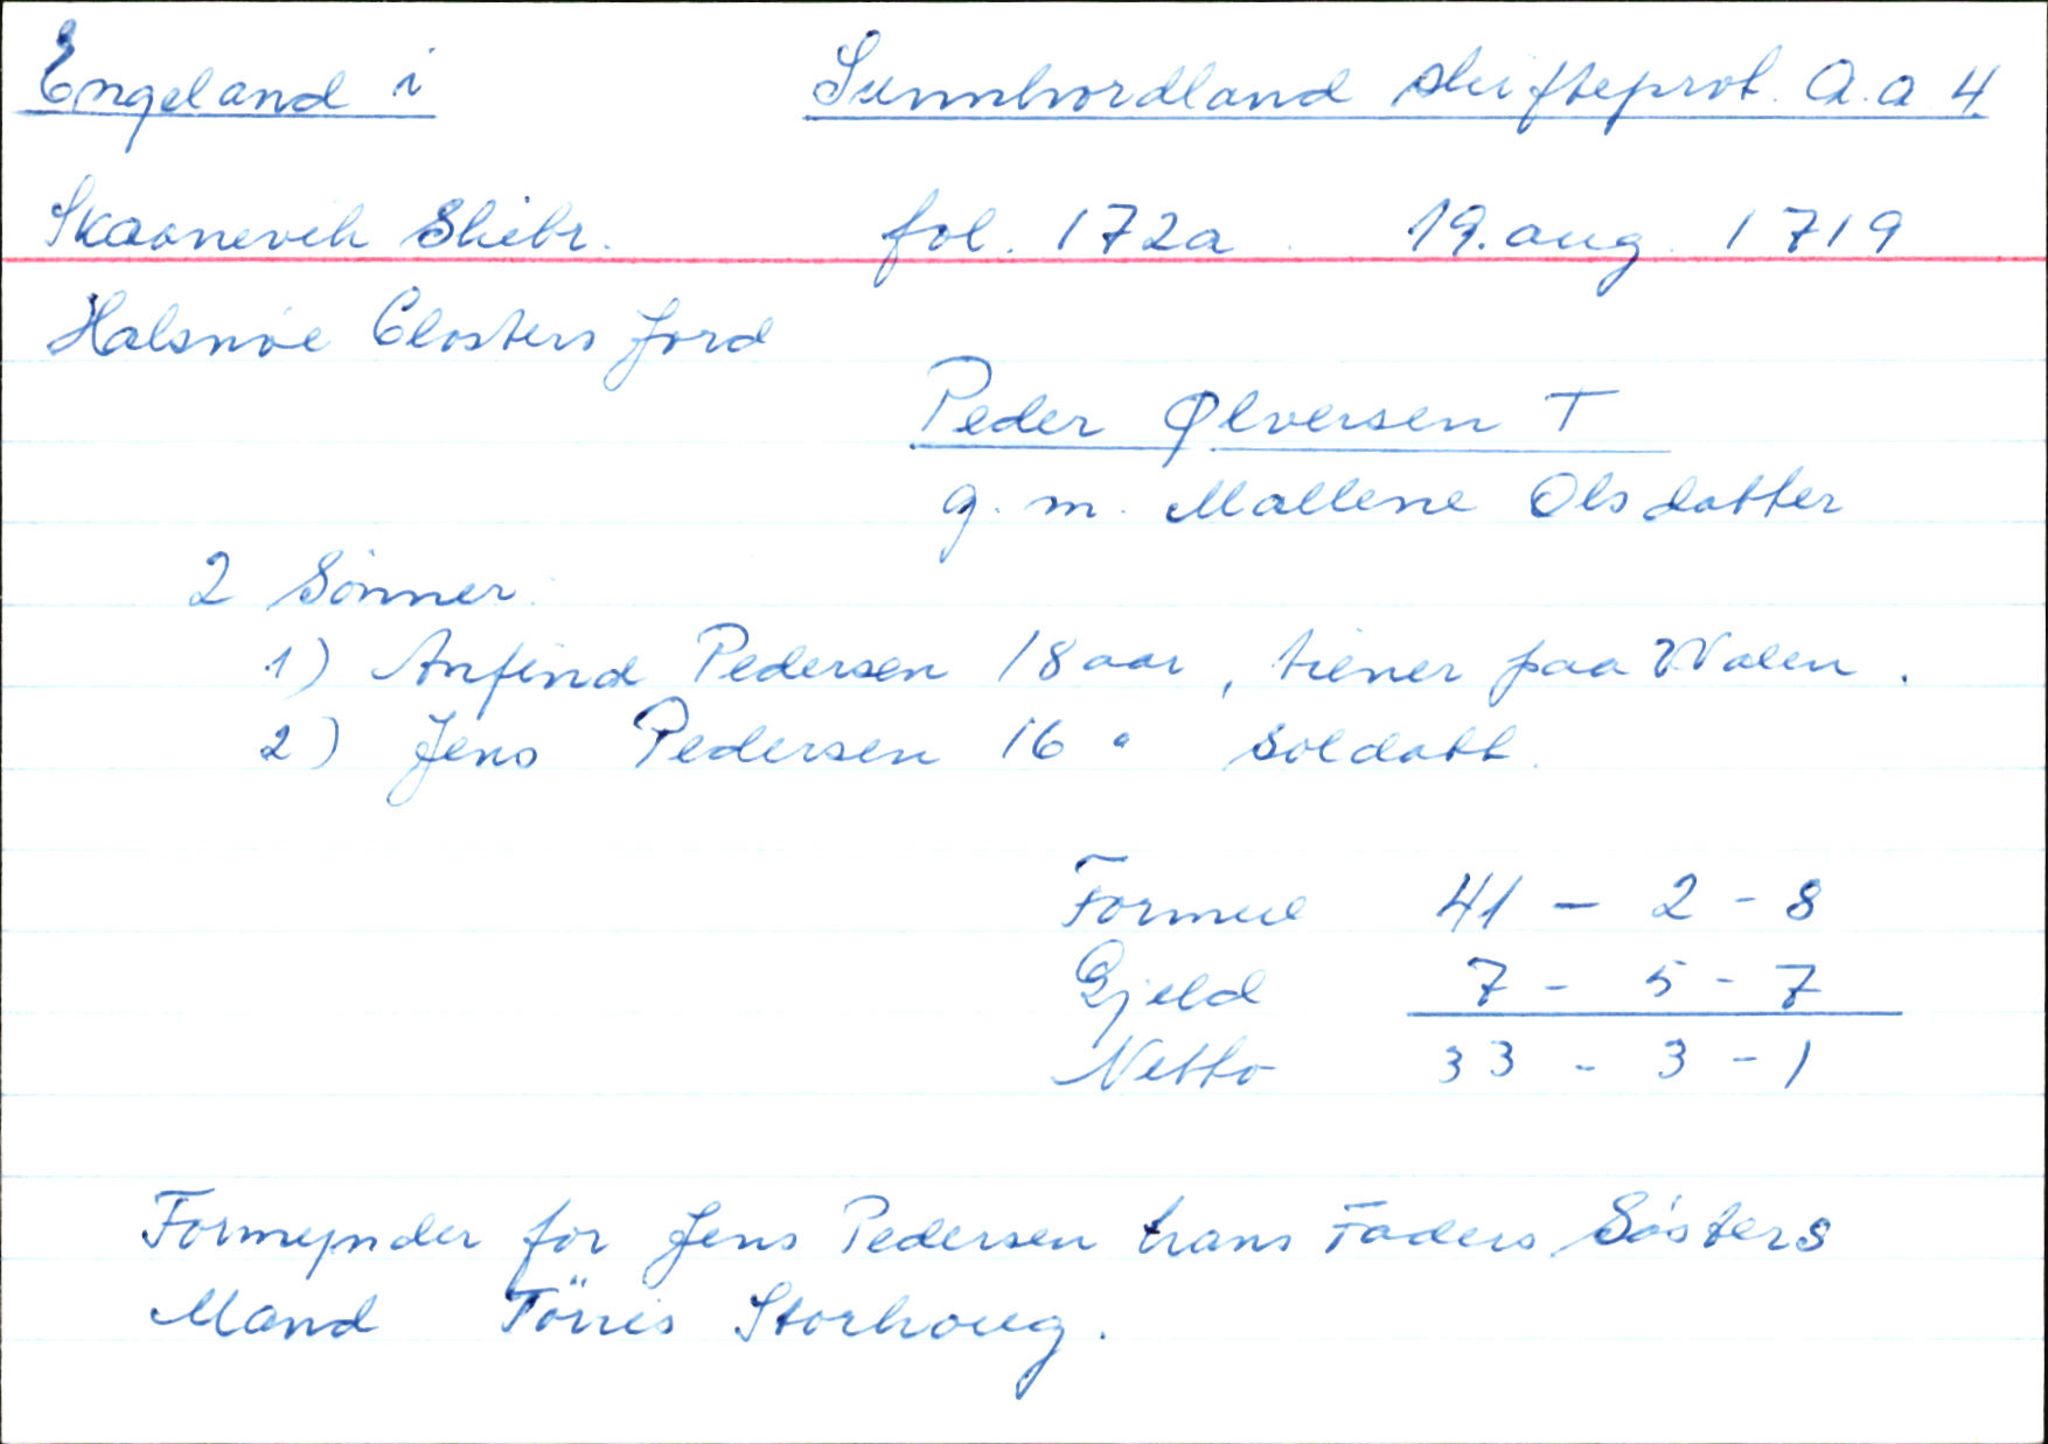 Engeland i
Sunnhordland skifteprot. A.a 4.
Skaanevik Skibr.
fol. 172a. 19. aug. 1719
Halsnöe Closters Jord
Peder Ølversen †
g. m. Mallene Olsdatter
2 Sönner:
1) Anfind Pedersen 18 aar, tiener paa Walen.
2) Jens Pedersen 16 " soldatt.
Formue 41 - 2 - 8
Gjeld 7 - 5 - 7
Netto 33 - 3 - 1
Formynder for Jens Pedersen hans Faders Sösters
Mand Törris Storhoug.